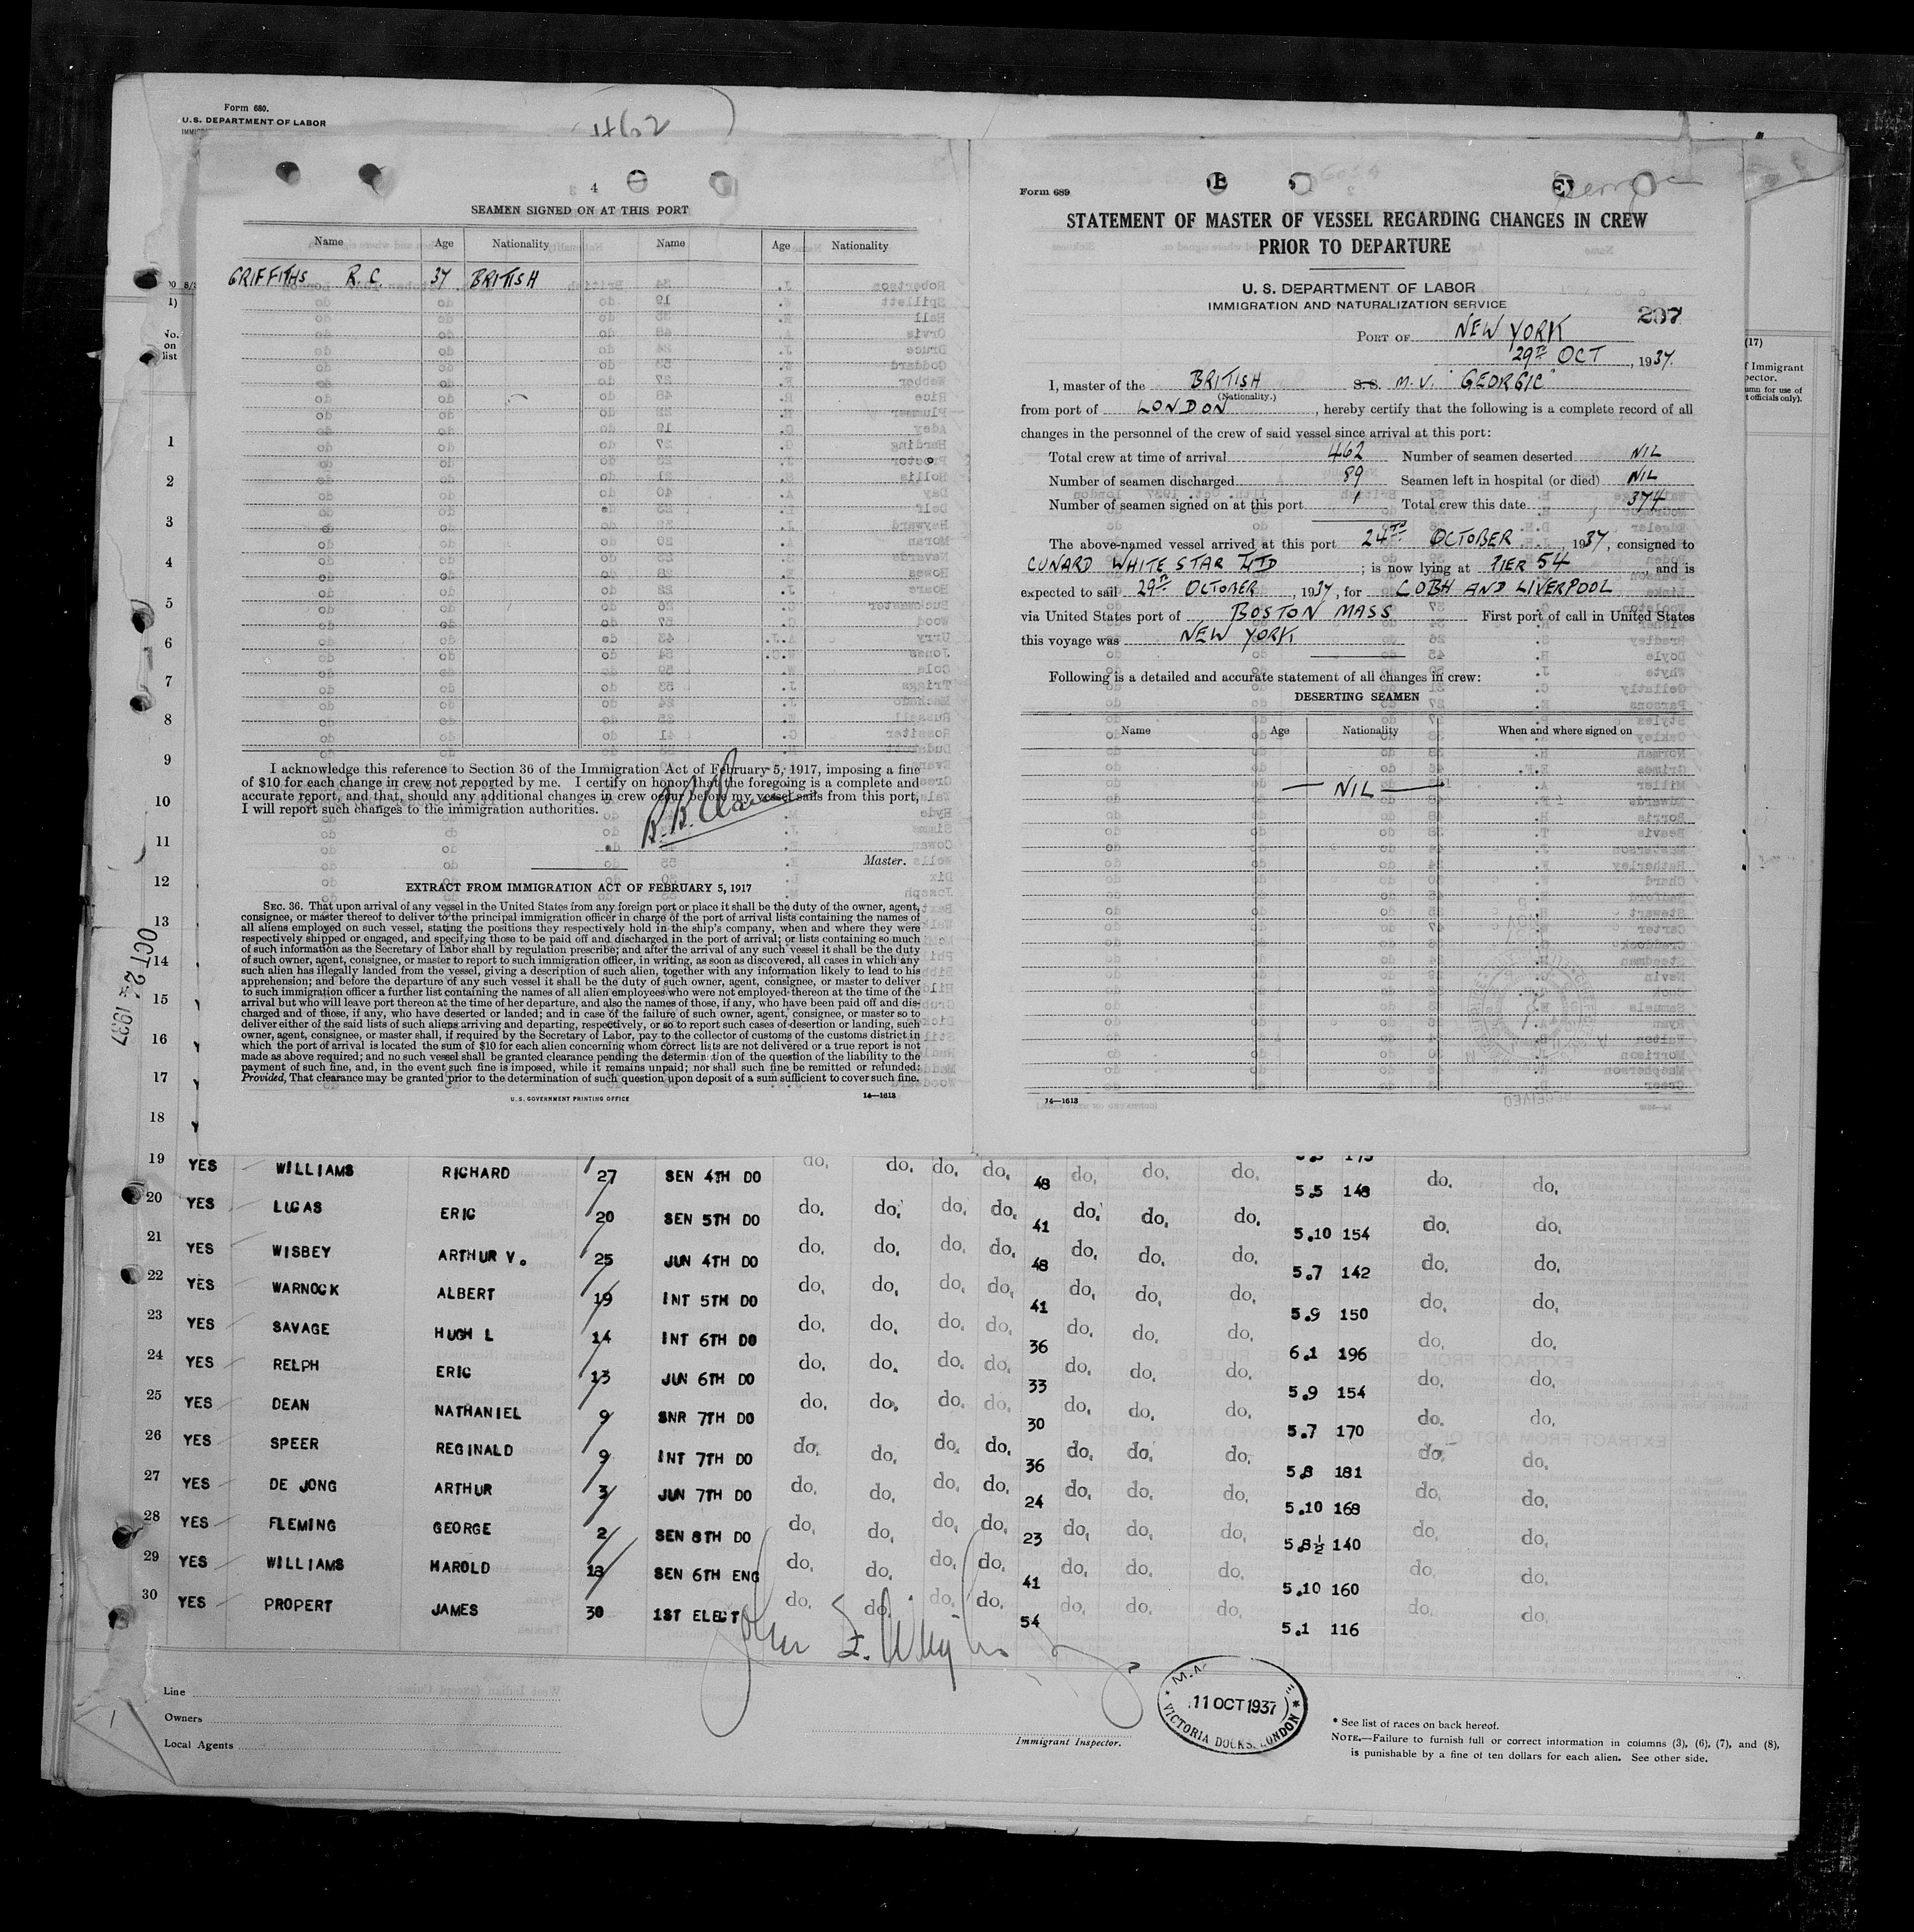 Form 680.
U.S. DEPARTMENT OF LABOR
462
4
SEAMEN SIGNED ON AT THIS PORT
Name Age Nationality Name Age Nationality
GRIFFITHS R. C. 37 BRITISH
I acknowledge this reference to Section 36 of the Immigration Act of February 5, 1917, imposing a fine
of $10 for each change in crew not reported by me. I certify on honor that the foregoing is a complete and
accurate report, and that, should any additional changes in crew occur before my vessel sails from this port,
I will report such changes to the immigration authorities.
Master.
EXTRACT FROM IMMIGRATION ACT OF FEBRUARY 5, 1917
SEC. 36. That upon arrival of any vessel in the United States from any foreign port or place it shall be the duty of the owner, agent,
consignee, or master thereof to deliver to the principal immigration officer in charge of the port of arrival lists containing the names of
all aliens employed on such vessel, stating the positions they respectively hold in the ship's company, when and where they were
respectively shipped or engaged, and specifying those to be paid off and discharged in the port of arrival; or lists containing so much
of such information as the Secretary of Labor shall by regulation prescribe; and after the arrival of any such vessel it shall be the duty
of such owner, agent, consignee, or master to report to such immigration officer, in writing, as soon as discovered, all cases in which any
such alien has illegally landed from the vessel, giving a description of such alien, together with any information likely to lead to his
apprehension; and before the departure of any such vessel it shall be the duty of such owner, agent, consignee, or master to deliver
to such immigration officer a further list containing the names of all alien employees who were not employed thereon at the time of the
arrival but who will leave port thereon at the time of her departure, and also the names of those, if any, who have been paid off and dis-
charged and of those, if any, who have deserted or landed; and in case of the failure of such owner, agent, consignee, or master so to
deliver either of the said lists of such aliens arriving and departing, respectively, or so to report such cases of desertion or landing, such
owner, agent, consignee, or master shall, if required by the Secretary of Labor, pay to the collector of customs of the customs district in
which the port of arrival is located the sum of $10 for each alien concerning whom correct lists are not delivered or a true report is not
made as above required; and no such vessel shall be granted clearance pending the determination of the question of the liability to the
payment of such fine, and, in the event such fine is imposed, while it remains unpaid; nor shall such fine be remitted or refunded:
Provided, That clearance may be granted prior to the determination of such question upon deposit of a sum sufficient to cover such fine.
U.S. GOVERNMENT PRINTING OFFICE 14—1613
Form 689
STATEMENT OF MASTER OF VESSEL REGARDING CHANGES IN CREW
PRIOR TO DEPARTURE
U. S. DEPARTMENT OF LABOR
IMMIGRATION AND NATURALIZATION SERVICE
207
PORT OF NEW YORK
29TH OCT, 1937.
I, master of the BRITISH S.S. M.V. "GEORGIC"
(Nationality.)
from port of LONDON, hereby certify that the following is a complete record of all
changes in the personnel of the crew of said vessel since arrival at this port:
Total crew at time of arrival 462 Number of seamen deserted NIL
Number of seamen discharged 89 Seamen left in hospital (or died) NIL
Number of seamen signed on at this port 1 Total crew this date 374
The above-named vessel arrived at this port 24TH OCTOBER, 1937, consigned to
CUNARD WHITE STAR LTD; is now lying at PIER 54 and is
expected to sail 29TH OCTOBER, 1937, for COBH AND LIVERPOOL
via United States port of BOSTON MASS First port of call in United States
this voyage was NEW YORK
Following is a detailed and accurate statement of all changes in crew:
DESERTING SEAMEN
Name Age Nationality When and where signed on
— NIL —
14—1613
(17)
f Immigrant
pector.
umn for use of
t officials only).
No.
on
list
1
2
3
4
5
6
7
8
9
10
11
12
13
14
15
16
17
18
OCT 24 1937
19 YES WILLIAMS RICHARD 27 SEN 4TH DO do. do. do. do. 48 do. do. do. 5.5 148 do. do.
20 YES LUCAS ERIC 20 SEN 5TH DO do. do. do. do. 41 do. do. do. 5.10 154 do. do.
21 YES WISBEY ARTHUR V. 25 JUN 4TH DO do. do. do. do. 48 do. do. do. 5.7 142 do. do.
22 YES WARNOCK ALBERT 19 INT 5TH DO do. do. do. do. 41 do. do. do. 5.9 150 do. do.
23 YES SAVAGE HUGH L 14 INT 6TH DO do. do. do. do. 36 do. do. do. 6.1 196 do. do.
24 YES RELPH ERIC 13 JUN 6TH DO do. do. do. do. 33 do. do. do. 5.9 154 do. do.
25 YES DEAN NATHANIEL 9 SNR 7TH DO do. do. do. do. 30 do. do. do. 5.7 170 do. do.
26 YES SPEER REGINALD 9 INT 7TH DO do. do. do. do. 36 do. do. do. 5.8 181 do. do.
27 YES DE JONG ARTHUR 3 JUN 7TH DO do. do. do. do. 24 do. do. do. 5.10 168 do. do.
28 YES FLEMING GEORGE 2 SEN 8TH DO do. do. do. do. 23 do. do. do. 5.8½ 140 do. do.
29 YES WILLIAMS HAROLD 18 SEN 6TH ENG do. do. do. do. 41 do. do. do. 5.10 160 do. do.
30 YES PROPERT JAMES 30 1ST ELECT do. do. do. do. 54 do. do. do. 5.1 116 do. do.
Line
Owners
Local Agents
Immigrant Inspector.
11 OCT 1937
VICTORIA DOCKS. LONDON
* See list of races on back hereof.
NOTE.—Failure to furnish full or correct information in columns (3), (6), (7), and (8),
is punishable by a fine of ten dollars for each alien. See other side.